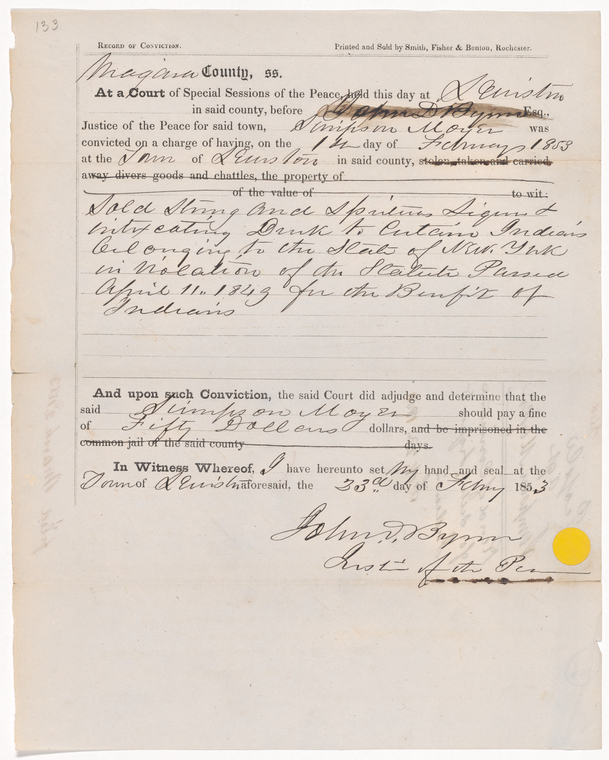 133
Record of Conviction. Printed and Sold by Smith, Fisher & Benton, Rochester.
Niagara County, ss.
At a Court of Special Sessions of the Peace, held this day at Lewiston
in said county, before John D Bynn Esq.,
Justice of the Peace for said town, Simpson Moyer was
convicted on a charge of having, on the day of Februay 1853
at the Town of Lewiston in said county, stolen, taken and carried
away divers goods and chattles, the property of
of the value of to wit:
Sold Strong and Spiritus Liquor &
intoxicating Drink to Certain Indians
belonging to the State of New York
in violation of the Statute Passed
April 11. 1849 for the Benefit of
Indians
And upon such Conviction, the said Court did adjudge and determine that the
said Simpson Moyer should pay a fine
of Fifty Dollars dollars, and be imprisoned in the
common jail of the said county days.
In Witness Whereof, I have hereunto set My hand and seal at the
Town of Lewiston aforesaid, the 23d day of Feby 1853
John D. Bynn
Justice of the Peace